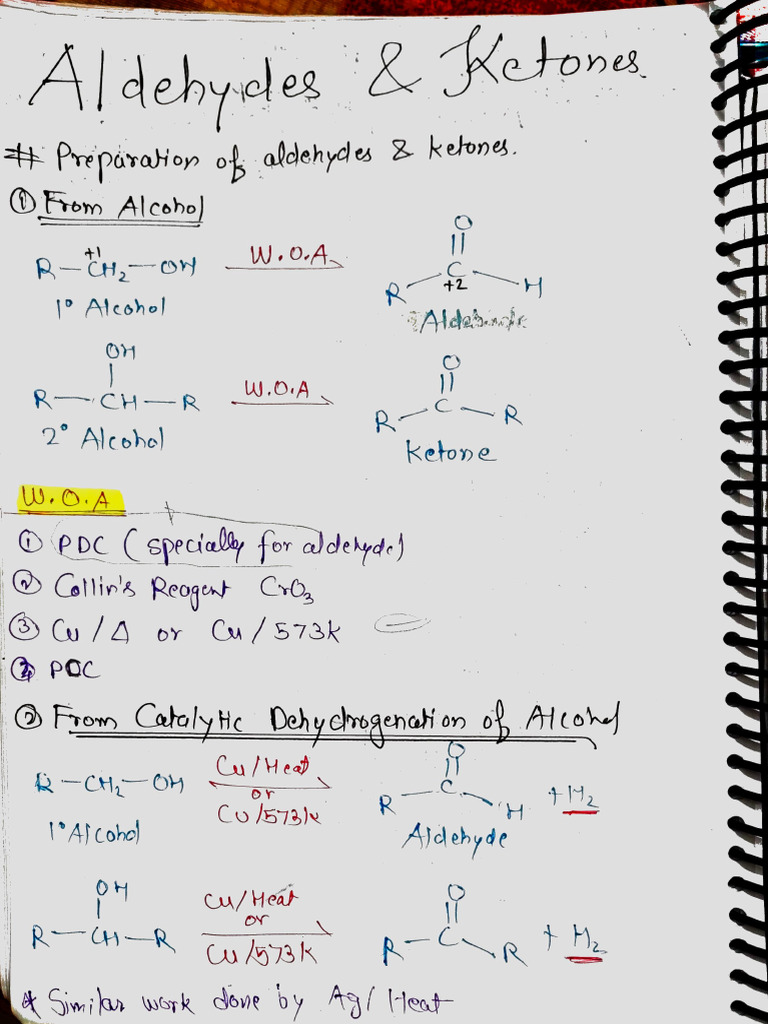 Aldehydes & Ketones
# Preparation of aldehydes & ketones.
① From Alcohol
R — CH₂ — OH
+1
W.O.A
O
||
R C H
+2
1° Alcohol
OH
|
R — CH — R
W.O.A
O
||
R — C — R
2° Alcohol
Ketone
W.O.A
① PDC (specially for aldehyde)
② Collin's Reagent CrO₃
③ Cu/Δ or Cu/573k
② From Catalytic Dehydrogenation of Alcohol
R — CH₂ — OH
Cu/Heat
or
Cu/573k
O
||
R — C — H + H₂
1° Alcohol
Aldehyde
OH
|
R — CH — R
Cu/Heat
or
Cu/573k
O
||
R — C — R + H₂
* Similar work done by Ag/Heat